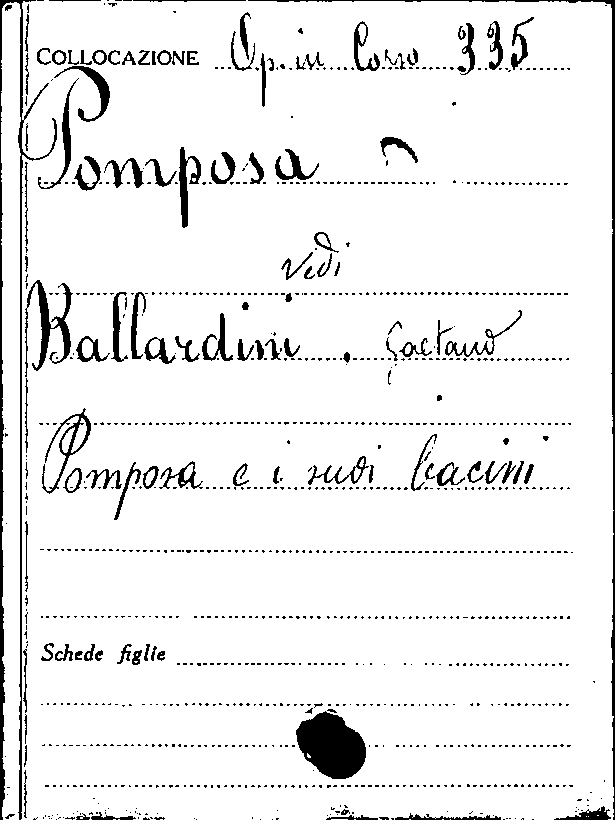 COLLOCAZIONE Op. in Corso 335
Pomposa
vedi
Ballardini. Gaetano
Pomposa e i suoi bacini
Schede figlie